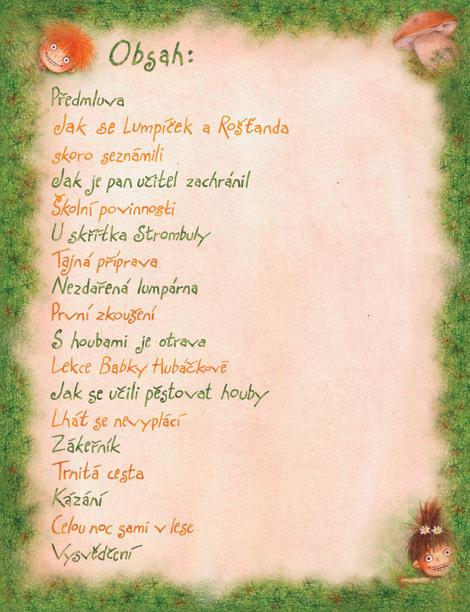 Obsah:
Předmluva
Jak se Lumpíček a Rošťanda
skoro seznámili
Jak je pan učitel zachránil
Školní povinnosti
U skřítka Strombuly
Tajná příprava
Nezdařená lumpárna
První zkoušení
S houbami je otrava
Lekce Babky Hubáčkové
Jak se učili pěstovat houby
Lhát se nevyplácí
Zákeřník
Trnitá cesta
Kázání
Celou noc sami v lese
Vysvědčení